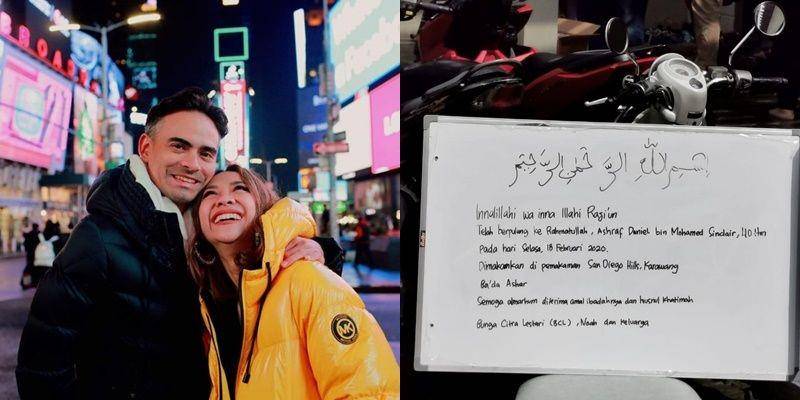 BROADWAY
MK
بسم الله الرحمن الرحيم
Innalillahi wa inna Illahi Raji'un
Telah berpulang ke Rahmatullah, Ashraf Daniel bin Mohamed Sinclair, 40 thn
Pada hari Selasa, 18 Februari 2020.
Dimakamkan di pemakaman San Diego Hills, Karawang
Ba'da Ashar
Semoga almarhum diterima amal ibadahnya dan husnul khatimah
Bunga Citra Lestari (BCL), Noah dan keluarga